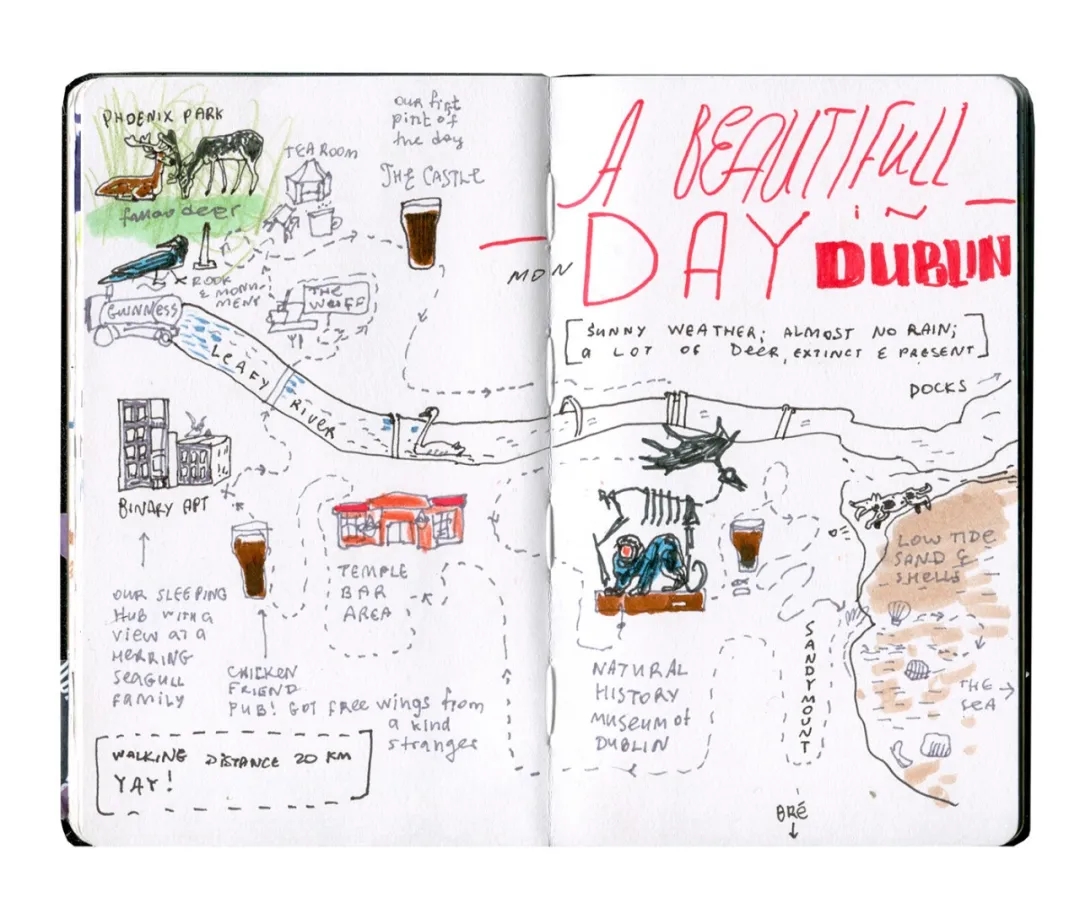 PHOENIX PARK
fallow deer
TEA ROOM
our first
pint of
the day
THE CASTLE
ROOK
& MONU-
MENT
GUINNESS
THE
LEAFY
RIVER
BINARY APT
OUR SLEEPING
HUB WITH A
VIEW AT A
HERRING
SEAGULL
FAMILY
TEMPLE
BAR
AREA
CHICKEN
FRIEND
PUB! GOT FREE wings from
a kind
stranger
WALKING DISTANCE 20 KM
YAY!
A BEAUTIFULL
MON
DAY
iN
DUBLIN
SUNNY WEATHER; ALMOST NO RAIN;
a LOT OF DEER, EXTINCT & PRESENT
DOCKS
LOW TIDE
SAND &
SHELLS
NATURAL
HISTORY
MUSEUM of
DUBLIN
SANDYMOUNT
THE
SEA
BRÉ